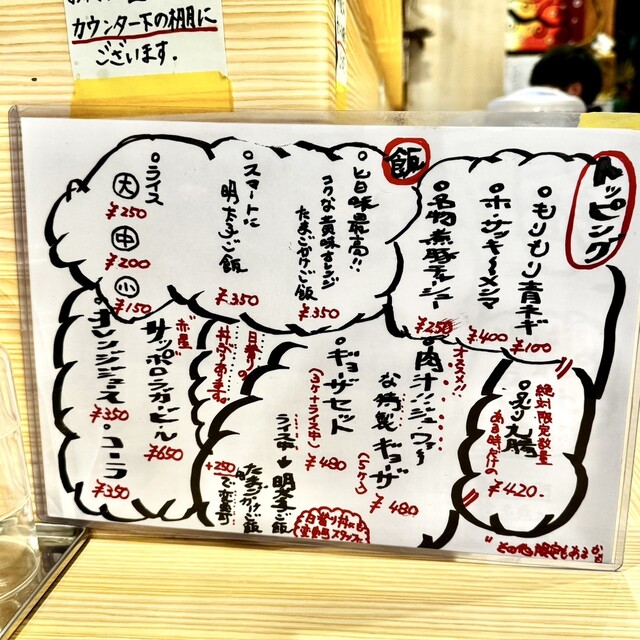 カウンター下の棚に
ございます。
トッピング
・もりもり青ネギ
¥100
・ホ・サッキーメンマ
¥400
・名物煮豚チャーシュー
¥250
飯
・旨味最高!!
コクな黄味オレンジ
たまごかけご飯
¥350
・スマートに
明太子ご飯
¥350
・ライス
大
¥250
中
¥200
小
¥150
絶対限定数量
ある時だけの
¥420
オススメ!!
・肉汁!!ジュワッ
な特製ギョーザ
(5ケ)
¥480
・ギョーザセット
(3ケ+ライス中)
¥480
ライス中→明太子ご飯
たまごかけご飯
+250で変更可
日替りの
丼ぶあります。
赤星
サッポロラガービール
¥650
・オレンジジュース
¥350
・コーラ
¥350